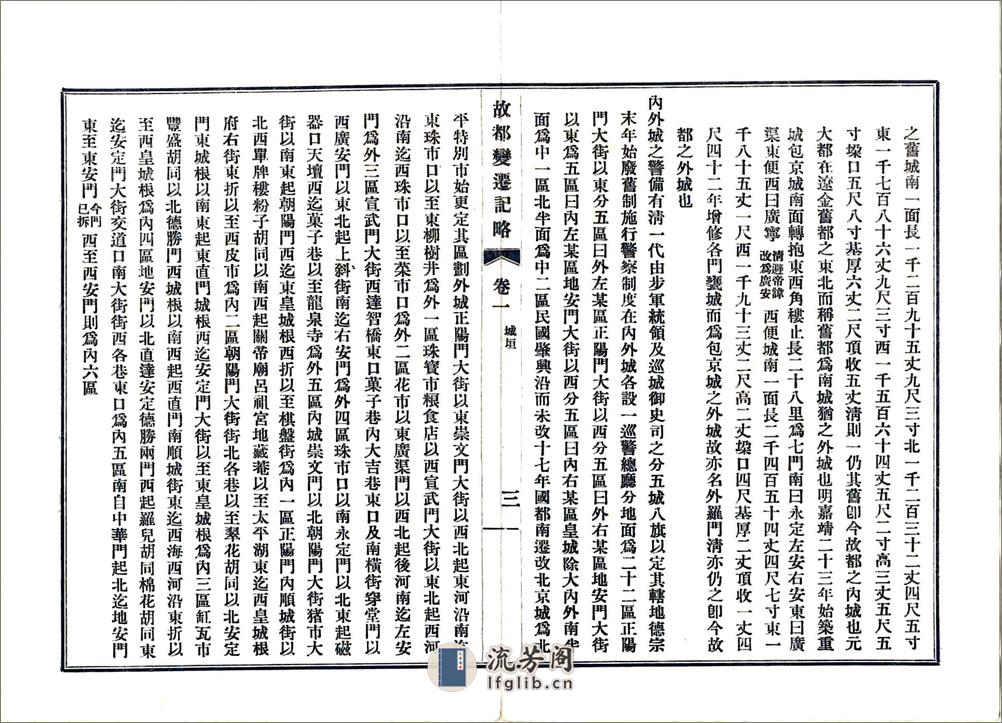 之舊城南一面長一千二百九十五丈九尺三寸北一千二百三十二丈四尺五寸
東一千七百八十六丈九尺三寸西一千五百六十四丈五尺二寸高三丈五尺五
寸垜口五尺八寸基厚六丈二尺頂收五丈淸則一仍其舊卽今故都之內城也元
大都在遼金舊都之東北而稱舊都爲南城猶之外城也明嘉靖二十三年始築重
城包京城南面轉抱東西角樓止長二十八里爲七門南曰永定左安右安東曰廣
渠東便西曰廣寧淸避帝諱改爲廣安西便城南一面長二千四百五十四丈四尺七寸東一
千八十五丈一尺西一千九十三丈二尺高二丈垜口四尺基厚二丈頂收一丈四
尺四十二年增修各門甕城而爲包京城之外城故亦名外羅門淸亦仍之卽今故
都之外城也
內外城之警備有淸一代由步軍統領及巡城御史司之分五城八旗以定其轄地德宗
末年始廢舊制施行警察制度在內外城各設一巡警總廳分地面爲二十二區正陽
門大街以東分五區曰外左某區正陽門大街以西分五區曰外右某區地安門大街
以東爲五區曰內左某區地安門大街以西分五區曰內右某區皇城除大內外南半
面爲中一區北半面爲中二區民國肇興沿而未改十七年國都南遷改北京城爲北
故都變遷記略
卷一
城垣
三
平特別市始更定其區劃外城正陽門大街以東崇文門大街以西北起東河沿南
東珠市口以至東柳樹井爲外一區珠寶市糧食店以西宣武門大街以東北起西河
沿南迄西珠市口以至菜市口爲外二區花市以東廣渠門以西北起後河南迄左安
門爲外三區宣武門大街西達智橋東口菓子巷內大吉巷東口及南橫街穿堂門以
西廣安門以東北起上斜街南迄右安門爲外四區珠市口以南永定門以北東起磁
器口天壇西迄菓子巷以至龍泉寺爲外五區內城崇文門以北朝陽門大街猪市大
街以南東起朝陽門西迄東皇城根西折以至棋盤街爲內一區正陽門內順城街以
北西單牌樓粉子胡同以南西起關帝廟呂祖宮地藏菴以至太平湖東迄西皇城根
府右街東折以至西皮市爲內二區朝陽門大街街北各巷以至翠花胡同以北安定
門東城根以南東起東直門城根西迄安定門大街以至東皇城根爲內三區缸瓦市
豐盛胡同以北德勝門西城根以南西起西直門南順城街東迄西海西河沿東折以
至西皇城根爲內四區地安門以北直達安定德勝兩門西起羅兒胡同棉花胡同東
迄安定門大街交道口南大街街西各巷東口爲內五區南自中華門起北迄地安門
東至東安門今門已拆西至西安門則爲內六區
流芳阁
lfglib.cn